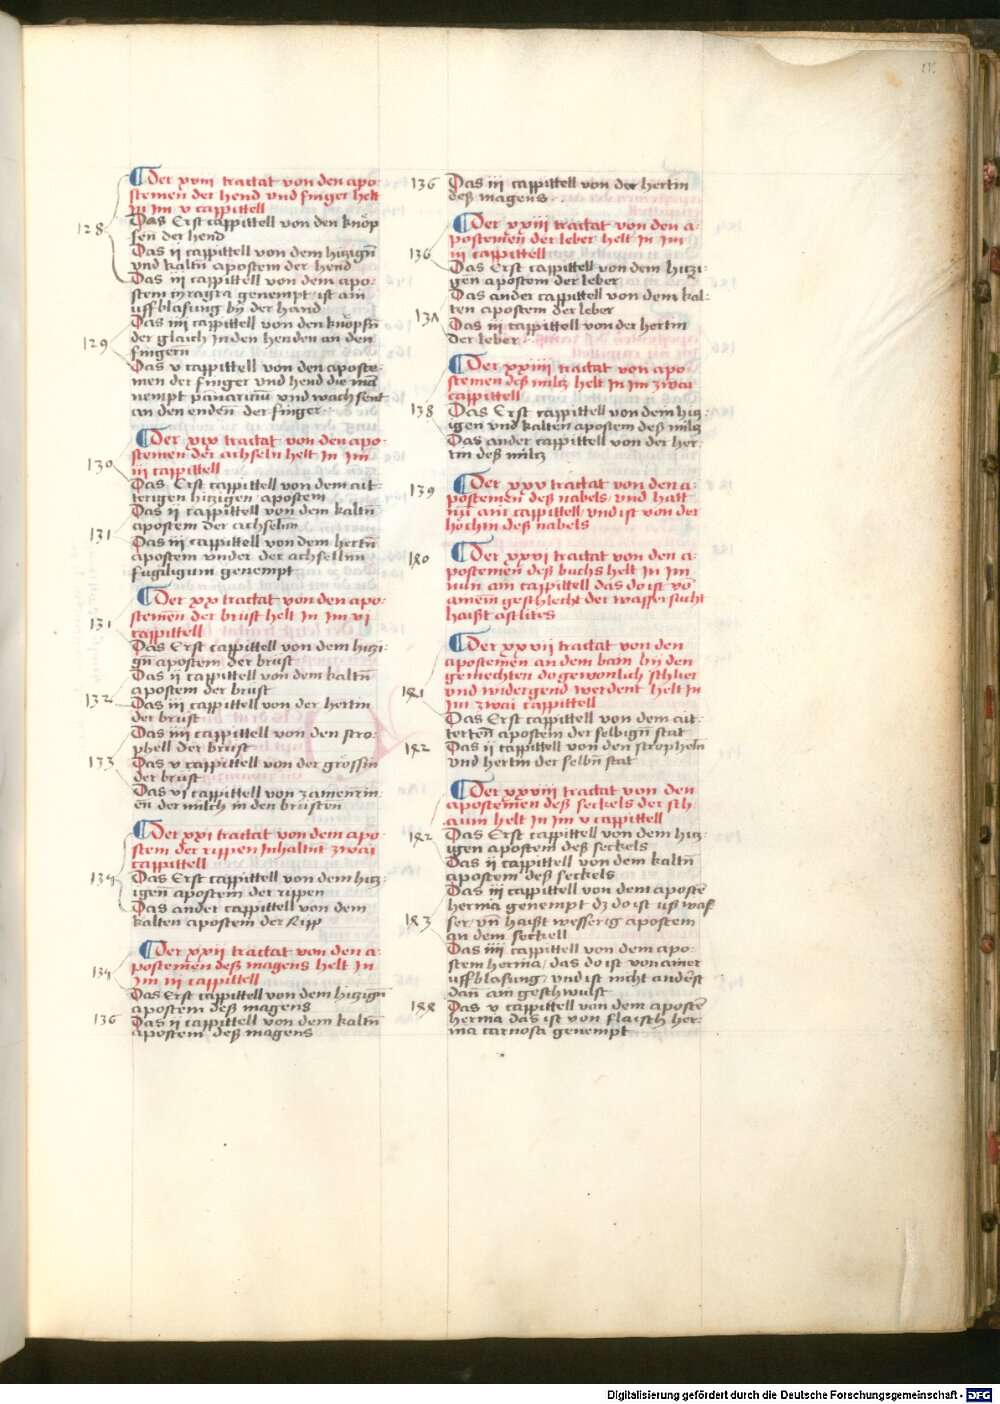 IV.
Der xviii tractat von den apo
stemen der hend vnd finger helt
jn im v cappittell
128
Das Erst cappittell von den knöp
fen der hend
Das ii cappittell von dem hizign̄
vnd kaltn̄ apostem der hend
Das iii cappittell von dem apo-
stem cyragra genempt ist ain
uffblasung by der hand
Das iiii cappittell von den knöpfn̄
129
der glaich Inden henden an den
fingern
Das v cappittell von den aposte-
men der finger vnd hend die man̄
nempt panaricīu vnd wachsent
an den enden der finger
Der xix tractat von den apo-
stemen der achseln helt In Im
130
iii cappittell
Das Erst cappittell von dem ait-
terigen hitzigen apostem
Das ii cappittell von dem kaltn̄
apostem der achseln̄
131
Das iii cappittell von dem hertn̄
apostem vnder der achsellnn
fugiligum genempt
Der xx tractat von den apo-
stemen der brust helt In Im vi
131
cappittell
Das Erst cappittell von dem hizi-
gn̄ apostem der brüst
Das ii cappittell von dem kaltn̄
apostem der brüst
132
Das iii cappittell von der hertin
der brüst
Das iiii cappittell von den scro-
phell der brüst
133
Das v cappittell von der grössin
der brüst
Das vj cappittell von zamenrin-
en der milch in den brüsten
Der xxi tractat von dem apo-
stem der rippen Inhaltnt zwai
cappittell
134
Das Erst cappittell von dem hitz-
igen̄ apostem der rippen
Das ander cappittell von dem
kalten apostem der Ripp
Der xxii tractat von den a-
134
postemen deß magens helt In
Im iii cappittell
Das Erst cappittell von dem hizign̄
apostem deß magens
136
Das ii cappittell von dem kaltn̄
apostem deß magens
136
Das iii cappittell von der hertin
deß magens
Der xxiii tractat von den a-
postemen̄ der leber helt In Im
136
iii cappittell
Das Erst cappittell von dem hitzi-
gen apostem der leber
Das ander cappittell von dem kal-
ten apostem der leber
137
Das iii cappittell von der hertin
der leber
Der xxiiii tractat von apo
stemen deß miltz helt In Im zwai
cappittell
138
Das Erst cappittell von dem hitz-
igen vnd kalten apostem deß miltz
Das ander cappittell von der her-
tin deß miltz
139
Der xxv tractat von den a-
postemen̄ deß nabels vnd hatt
nū ain cappittell vnd ist von der
höchin deß nabels
140
Der xxvi tractat von den a-
postemen̄ deß buchs helt In Im
nun ain cappittell das do ist vō
ainem̄ geschlecht der wassersucht
haißt asclites
Der xxvii tractat von den
apostemen an dem bain bij den
gemechten do gewonlich schlier
141
vnd widergend werdent helt In
Im zwai cappittell
Das Erst cappittell von dem ait-
terten̄ apostem der selbign̄ stat
142
Das ii cappittell von den scropheln̄
vnd hertin der selbn̄ stat
Der xxviii tractat von den
apostemen deß seckels der sch-
aum helt In Im v cappittell
142
Das Erst cappittell von dem hitz-
igen apostem deß seckels
Das ii cappittell von dem kaltn̄
apostem deß seckels
Das iii cappittell von dem apostē
hernia genempt dz do ist uß was
143
ser vn̄ haißt wesserig apostem
an dem seckell
Das iiii cappittell von dem apo-
stem hernia das do ist von ainer
uffblasung vnd ist nicht anderst
dan̄ ain geschwulst
144
Das v cappittell von dem apostē
hernia das ist von flaisch her-
nia carnosa genempt
Digitalisierung gefördert durch die Deutsche Forschungsgemeinschaft - DFG